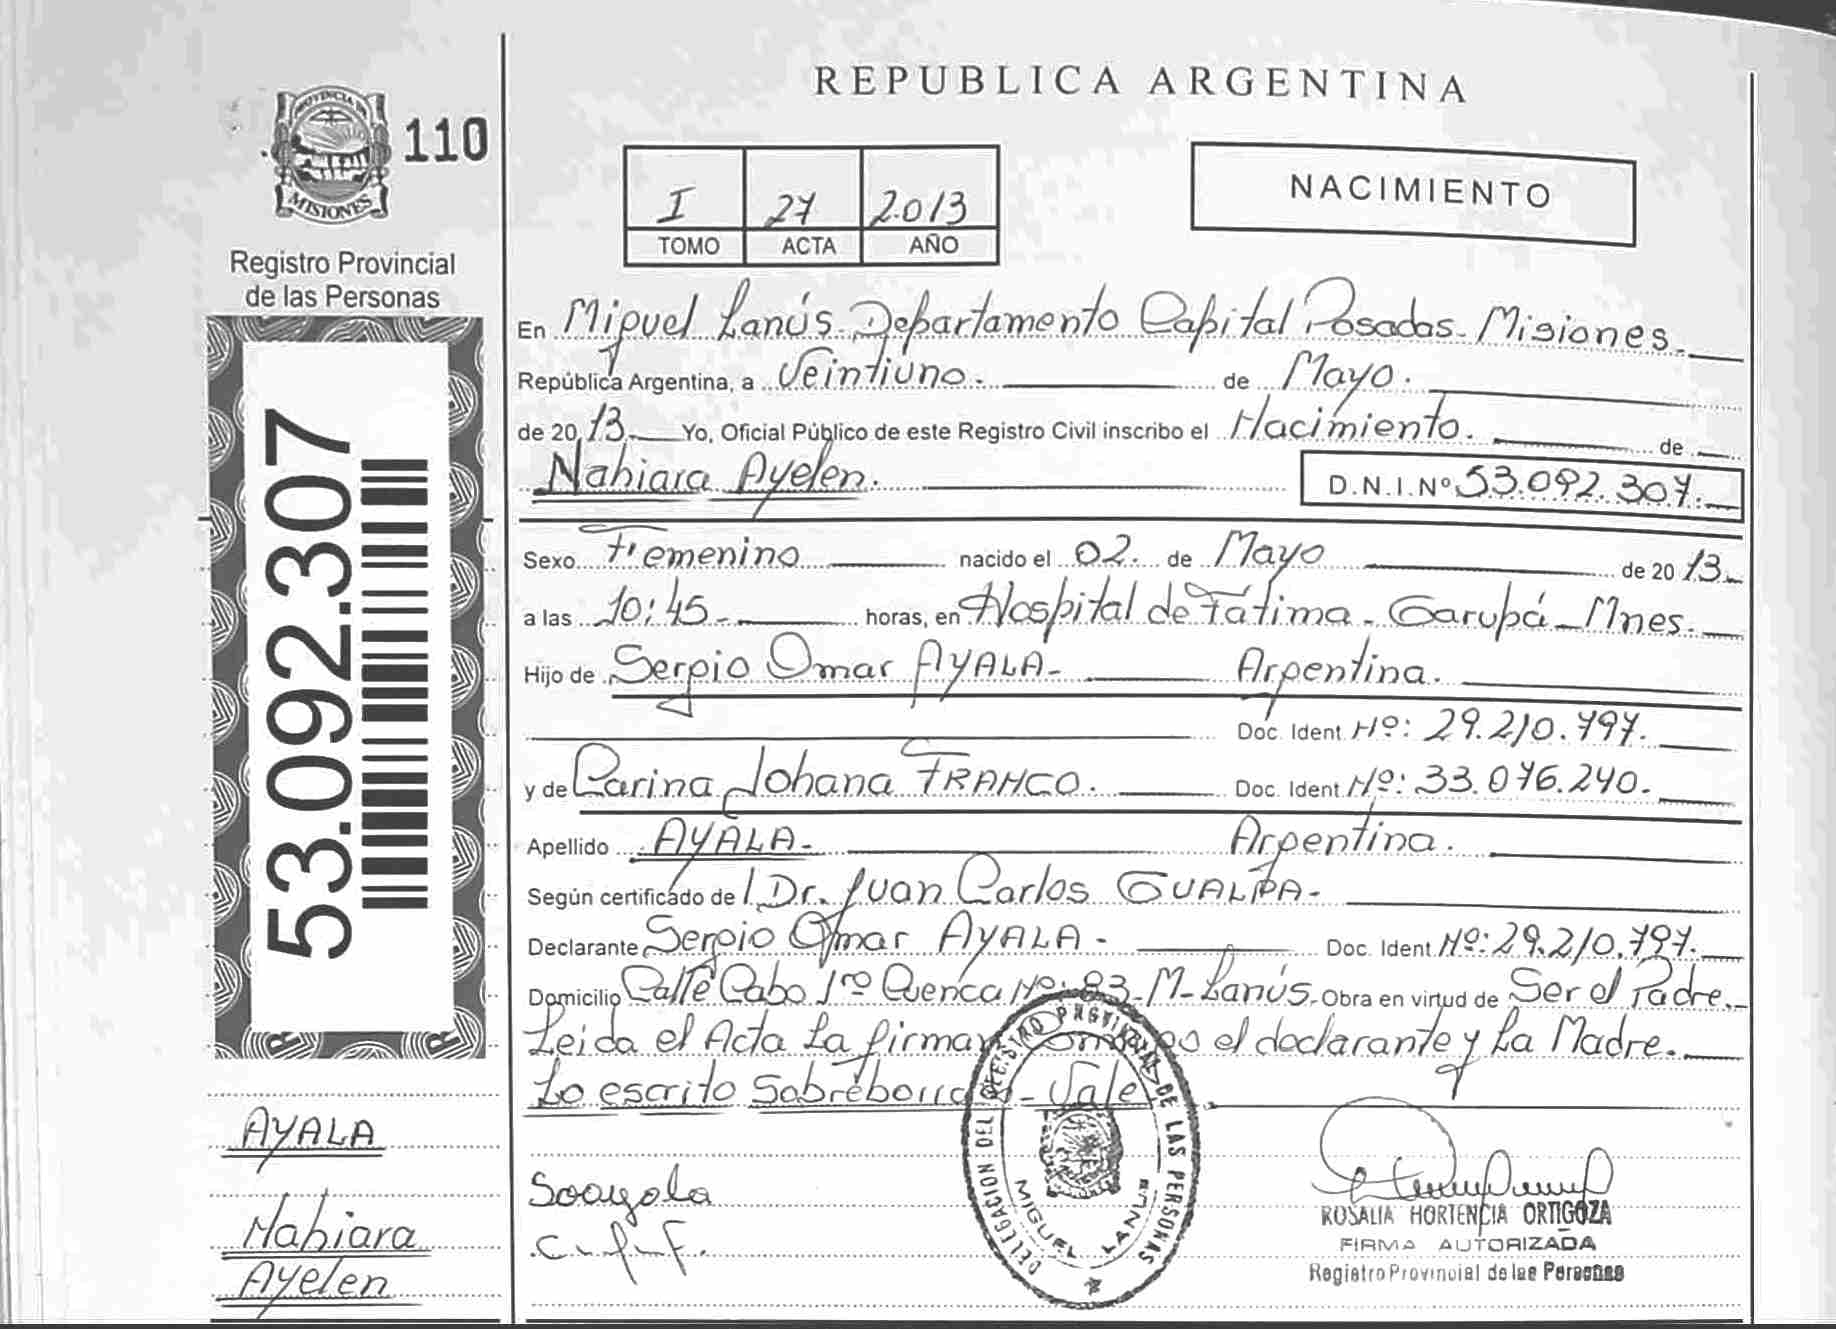 REPUBLICA ARGENTINA
PROVINCIA DE
MISIONES
110
Registro Provincial
de las Personas
53.092.307
AYALA
Nahiara
Ayelen
I 27 2.013
TOMO ACTA AÑO
NACIMIENTO
En Miguel Lanús. Departamento Capital Posadas - Misiones.
República Argentina, a Veintiuno. de Mayo.
de 20 13. Yo, Oficial Público de este Registro Civil inscribo el Nacimiento. de
Nahiara Ayelen. D.N.I.Nº 53.092.307.
Sexo Femenino nacido el 02. de Mayo de 20 13.
a las 10:45 horas, en Hospital de Fátima - Garupá - Mnes.
Hijo de Sergio Omar AYALA - Argentina.
Doc. Ident Nº: 29.210.797.
y de Carina Johana FRANCO. Doc. Ident Nº: 33.076.240.
Apellido AYALA - Argentina.
Según certificado de Dr. Juan Carlos GUALPA -
Declarante Sergio Omar AYALA - Doc. Ident Nº: 29.210.797.
Domicilio Calle Cabo 1ro Cuenca Nº: 83 - M - Lanús. Obra en virtud de Ser el Padre.
Leida el Acta La firman el declarante y La Madre.
Lo escrito Sobreborrado - Vale
DELEGACION DEL REGISTRO PROVINCIAL DE LAS PERSONAS
MIGUEL LANUS
ROSALIA HORTENCIA ORTIGOZA
FIRMA AUTORIZADA
Registro Provincial de las Personas